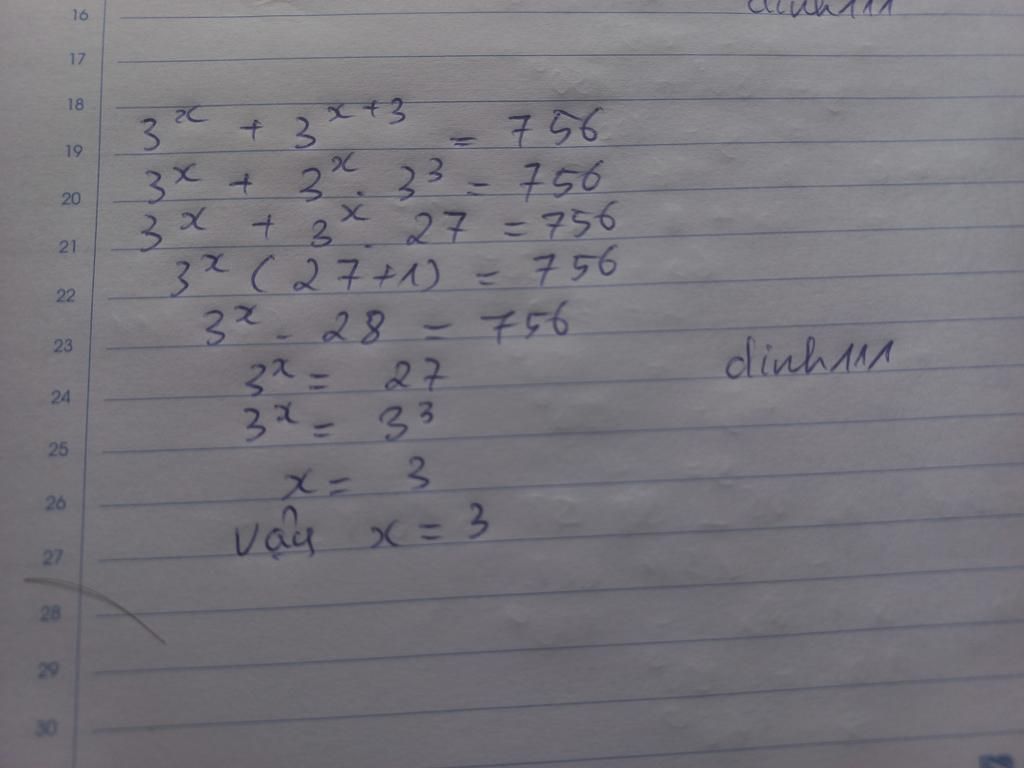 16
dinh111
17
18
3^x + 3^{x+3} = 756
19
3^x + 3^x . 3^3 = 756
20
3^x + 3^x . 27 = 756
21
3^x ( 27+1) = 756
22
3^x . 28 = 756
23
dinh111
3^x = 27
24
3^x = 3^3
25
x = 3
26
vậy x = 3
27
28
29
30